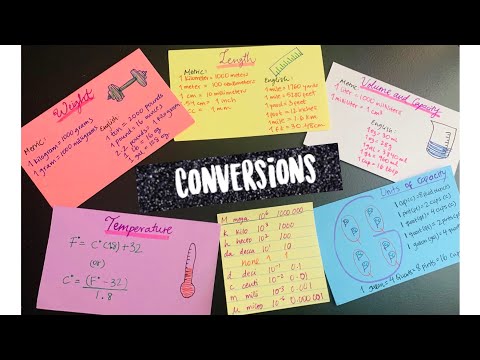 Weight
Metric:
1 kilogram = 1000 grams
1 gram = 1000 milligrams
English
1 ton = 2000 pounds
1 pound = 16 ounces
2.2 pounds = 1 kilogram
Length
Metric:
1 kilometer = 1000 meters
1 meter = 100 centimeters
1 cm = 10 millimeters
1 inch
English:
1 mile = 1760 yards
1 mile = 5280 feet
1 yard = 3 feet
1 foot = 12 inches
1 mile = 1.6 km
Volume and Capacity
Metric:
1 liter = 1000 milliliters
1 milliliter = 1 cm³
English:
CONVERSIONS
Temperature
F° = C°(1.8) + 32
(or)
C° = (F° - 32)
1.8
M mega 10⁶ 1000 000
k kilo 10³ 1000
h hecto 10² 100
da deca 10¹ 10
none 1 1
d deci 10⁻¹ 0.1
c centi 10⁻² 0.01
m milli 10⁻³ 0.001
μ micro 10⁻⁶ 0.000 001
Units of Capacity
1 cup(c) = 8 fluid ounces
1 pint(pt) = 2 cups (c)
1 quart(qt) = 4 cups (c)
1 quart(qt) = 2 pints
1 gallon (gal) = 4
1 = 4 Quarts = 8 pints = 16 cups